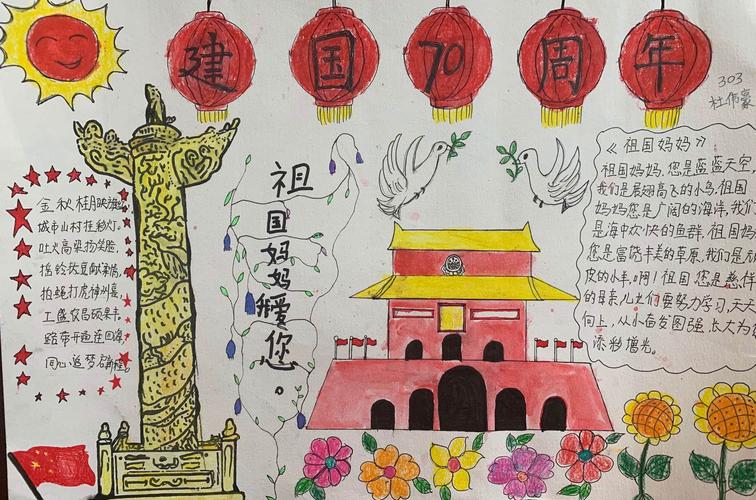 建国70周年
303
杜伟豪
祖国妈妈我爱您。
金秋桂月映海
城市山村挂彩灯。
吐火高粱扬笑脸,
拍蝇打虎神州
工盛农昌硕果丰,
同心追梦
《祖国妈妈》
祖国妈妈,您是蓝蓝天空,
我们是展翅高飞的小鸟,祖国
妈妈您是广阔的海洋,我们
是海中欢快的鱼群。祖国妈
您是富饶丰美的草原,我们是
皮的小羊,啊!祖国您是慈祥
的母亲,儿女们要努力学习,天天
向上,从小奋发图强,长大为
添彩增光。